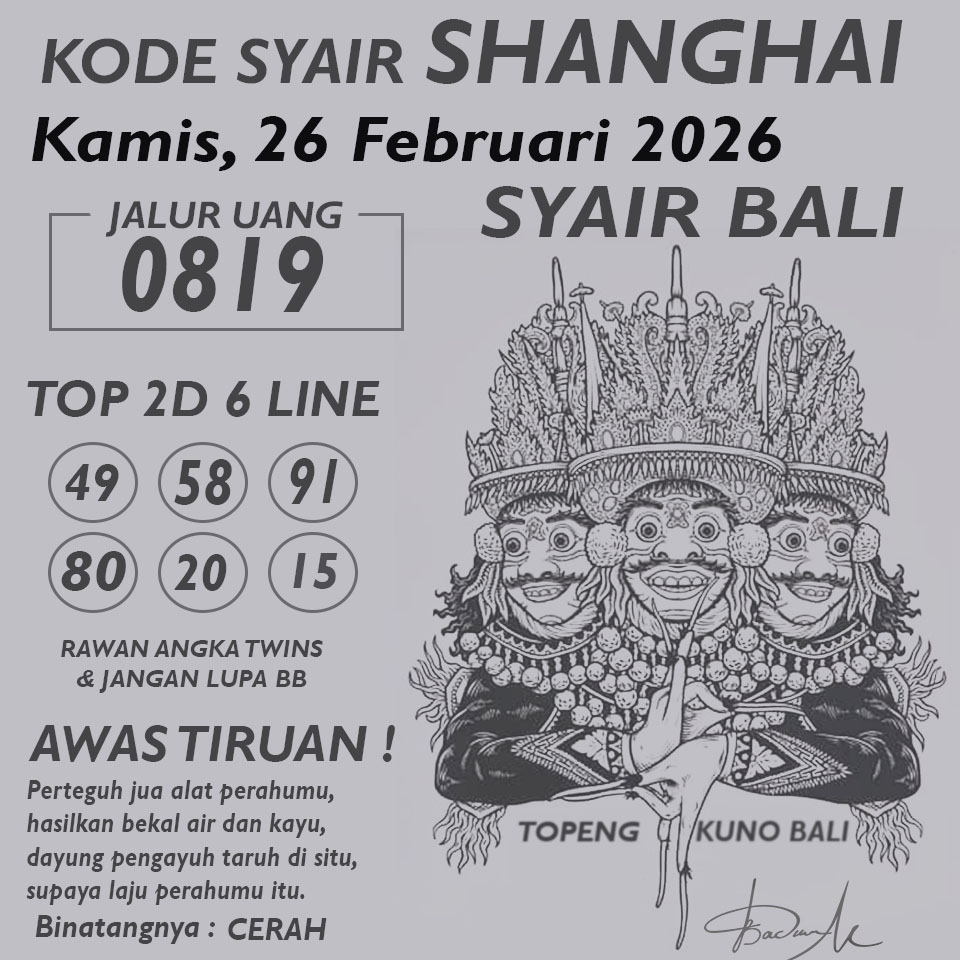 KODE SYAIR SHANGHAI
Kamis, 26 Februari 2026
SYAIR BALI
JALUR UANG
0819
TOP 2D 6 LINE
49 58 91
80 20 15
RAWAN ANGKA TWINS
& JANGAN LUPA BB
AWAS TIRUAN !
Perteguh jua alat perahumu,
hasilkan bekal air dan kayu,
dayung pengayuh taruh di situ,
supaya laju perahumu itu.
Binatangnya : CERAH
TOPENG KUNO BALI